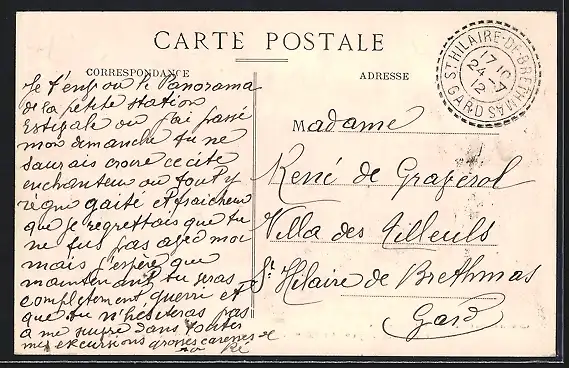 CARTE POSTALE
CORRESPONDANCE
ADRESSE
Je t'envoie le Panorama
de la petite station
Estivale ou j'ai passé
mon dimanche tu ne
saurais croire ce site
enchanteur ou tout y
règne gaité et fraicheur
que je regrettais que tu
ne fus pas avec moi
mais j'espère que
maintenant tu seras
completement guerri et
que tu n'hésiteras pas
a me suivre dans toutes
mes excursions grosses caresses de
ton Ré
Madame
René de Graverol
Villa des Tilleuls
St Hilaire de Brethmas
Gard
ST HILAIRE-DE-BRETHMAS
17
24 - 7
12
GARD